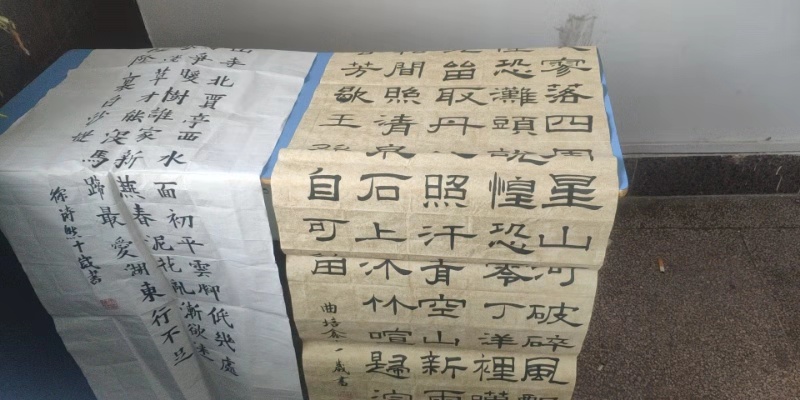 山寺北賈亭西水面初平雲腳低幾處
爭暖樹誰家新燕春泥花亂漸欲迷
草才能沒馬蹄最愛湖東行不足
陰裏白沙堤
十歲書
寥落四周星山河破碎風飄
恐灘頭說惶恐零丁洋裡嘆
留取丹心照汗青空山新雨
間照清泉石上流竹喧歸浣
芳歇王孫自可留